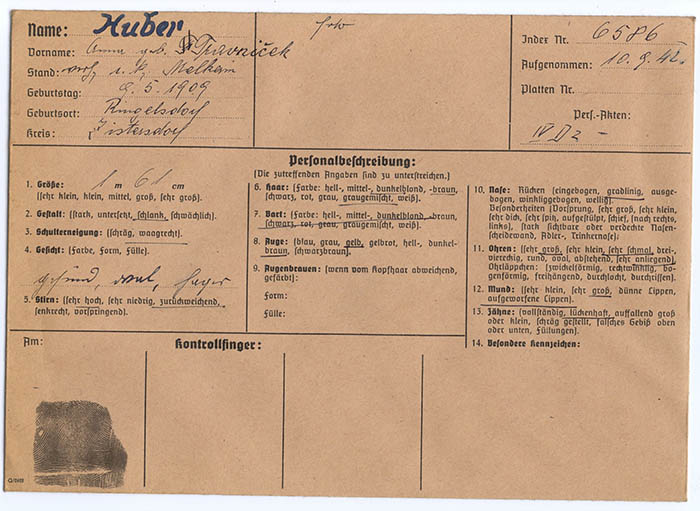 Name: Huber
Vorname: Anna geb. Travniček
Stand: verh. r. k. Melkerin
Geburtstag: 9. 5. 1909
Geburtsort: Ringelsdorf
Kreis: Zistersdorf
Index Nr. 6586
Aufgenommen: 10. 9. 42.
Platten Nr.
Pers.-Akten:
IV D 2 -
Personalbeschreibung:
(Die zutreffenden Angaben sind zu unterstreichen).
1. Größe: 1 m 61 cm
(sehr klein, klein, mittel, groß, sehr groß).
2. Gestalt: (stark, untersetzt, schlank, schwächlich).
3. Schulterneigung: (schräg, waagrecht).
4. Gesicht: (Farbe, Form, Fülle).
gesund, oval, hager
5. Stirn: (sehr hoch, sehr niedrig, zurückweichend,
senkrecht, vorspringend).
6. Haar: (Farbe: hell-, mittel-, dunkelblond, -braun,
schwarz, rot, grau, graugemischt, weiß).
7. Bart: (Farbe: hell-, mittel-, dunkelblond, -braun,
schwarz, rot, grau, graugemischt, weiß).
8. Auge: (blau, grau, gelb, gelbrot, hell-, dunkel-
braun, schwarzbraun).
9. Augenbrauen: (wenn vom Kopfhaar abweichend,
gefärbt):
Form:
Fülle:
10. Nase: Rücken (eingebogen, gradlinig, ausge-
bogen, winkliggebogen, wellig).
Besonderheiten (Vorsprung, sehr groß, sehr klein,
sehr dick, sehr spitz, aufgestülpt, schief, (nach rechts,
links), stark sichtbare oder verdeckte Nasen-
scheidewand, Adler-, Trinkernase).
11. Ohren: (sehr groß, sehr klein, sehr schmal, drei-,
viereckig, rund, oval, abstehend, sehr anliegend)
Ohrläppchen: (zwickelförmig, rechtwinklig, bo-
genförmig, freihängend, durchlocht, durchrissen).
12. Mund: (sehr klein, sehr groß, dünne Lippen,
aufgeworfene Lippen).
13. Zähne: (vollständig, lückenhaft, auffallend groß
oder klein, schräg gestellt, falsches Gebiß oben
oder unten, Füllungen).
14. Besondere Kennzeichen:
Am:
Kontrollfinger: